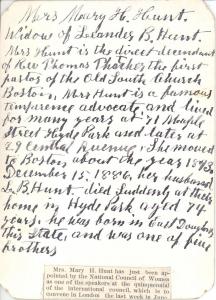 Mrs Mary H. Hunt.
Widow of Leander B. Hunt.
Mrs Hunt is the direct decendant
of Rev Thomas Thatcher the first
pastor of the Old South Church
Boston, Mrs Hunt is a famous
temperance advocate, and lived
for many years at 71 Maple
Street Hyde Park and later at
29 Central Avenue. She moved
to Boston about the year
December 15, 1886, her husband
L. B. Hunt died suddenly at their
home in Hyde Park aged 74
years, he was born in East Douglas
this State, and was one of five
brothers
Mrs. Mary H. Hunt has just been ap-
pointed by the National Council of Women
as one of the speakers at the quinquennial
of the international council, which is to
convene in London the last week in June